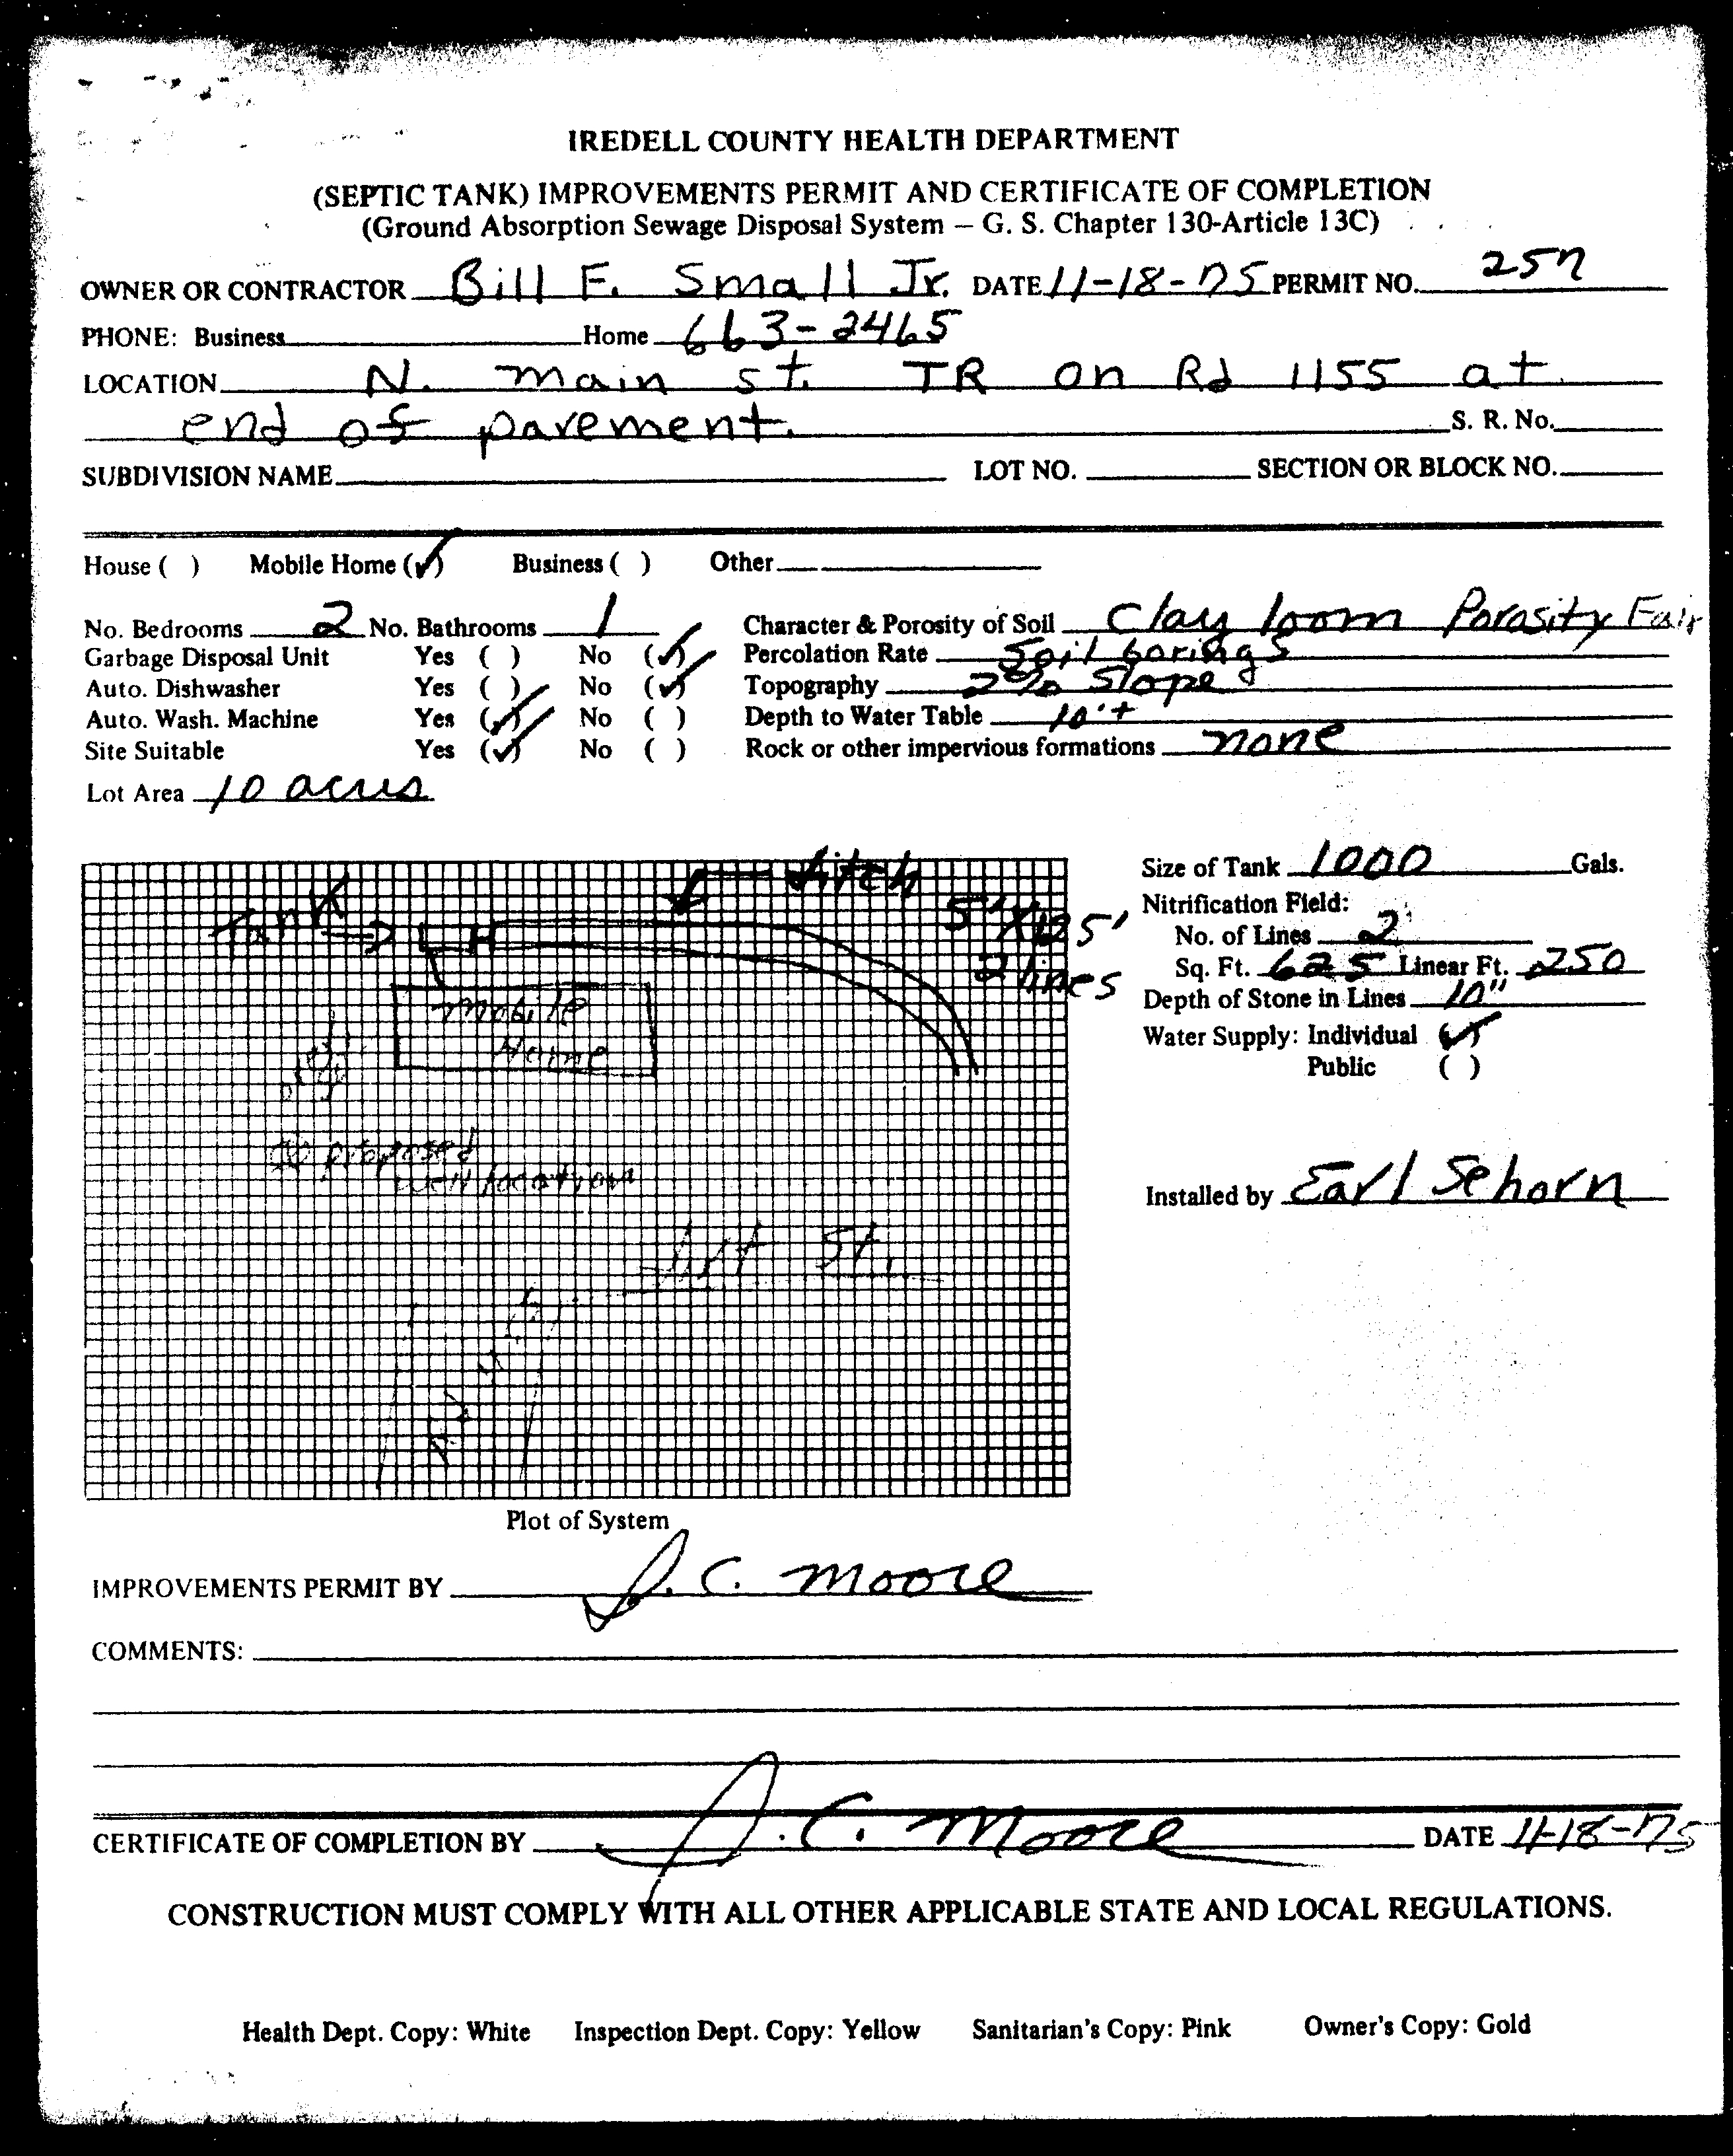 IREDELL COUNTY HEALTH DEPARTMENT
(SEPTIC TANK) IMPROVEMENTS PERMIT AND CERTIFICATE OF COMPLETION
(Ground Absorption Sewage Disposal System – G. S. Chapter 130-Article 13C)
OWNER OR CONTRACTOR Bill F. Small Jr. DATE 11-18-75 PERMIT NO. 257
PHONE: Business Home 663-2465
LOCATION N. Main st. TR on Rd 1155 at
end of pavement. S. R. No.
SUBDIVISION NAME LOT NO. SECTION OR BLOCK NO.
House ( ) Mobile Home (✓) Business ( ) Other
No. Bedrooms 2 No. Bathrooms 1 Character & Porosity of Soil Clay loom Porosity Fair
Garbage Disposal Unit Yes ( ) No (✓) Percolation Rate Soil borings
Auto. Dishwasher Yes ( ) No (✓) Topography 2% Slope
Auto. Wash. Machine Yes (✓) No ( ) Depth to Water Table 10'+
Site Suitable Yes (✓) No ( ) Rock or other impervious formations none
Lot Area 10 acres
ditch
Tank
5' X 125'
2 lines
Mobile
Home
proposed
well location
St.
Size of Tank 1000 Gals.
Nitrification Field:
No. of Lines 2
Sq. Ft. 625 Linear Ft. 250
Depth of Stone in Lines 10"
Water Supply: Individual (✓)
Public ( )
Installed by Earl Sehorn
Plot of System
IMPROVEMENTS PERMIT BY J. C. Moore
COMMENTS:
CERTIFICATE OF COMPLETION BY J. C. Moore DATE 11-18-75
CONSTRUCTION MUST COMPLY WITH ALL OTHER APPLICABLE STATE AND LOCAL REGULATIONS.
Health Dept. Copy: White Inspection Dept. Copy: Yellow Sanitarian's Copy: Pink Owner's Copy: Gold